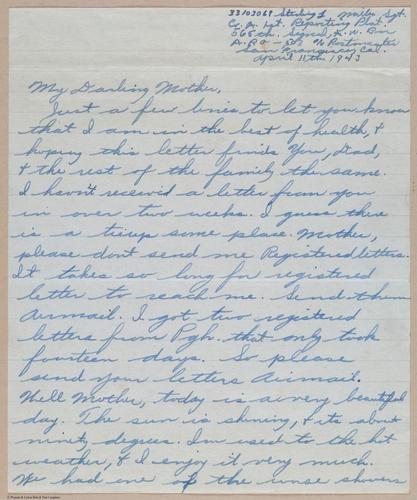 33103069 Sterling Milbo Sgt.
Co. A. 1st. Reporting Plat.
565th. Signal A.W. Bn
A.P.O - c/o Postmaster
San Francisco Cal.
April 11th 1943
My Darling Mother,
Just a few lines to let you know
that I am in the best of health, &
hoping this letter finds You, Dad,
& the rest of the family the same.
I havn't received a letter from you
in over two weeks. I guess there
is a tieup some place. Mother,
please don't send me Registered letters.
It takes so long for registered
letter to reach me. Send them
Airmail. I got two registered
letters from Pgh. that only took
fourteen days. So please
send your letters Airmail.
Well Mother, today is a very beautiful
day. The sun is shining, & its about
ninety degrees. I'm used to the hot
weather, & I enjoy it very much.
We had one of the worse showers